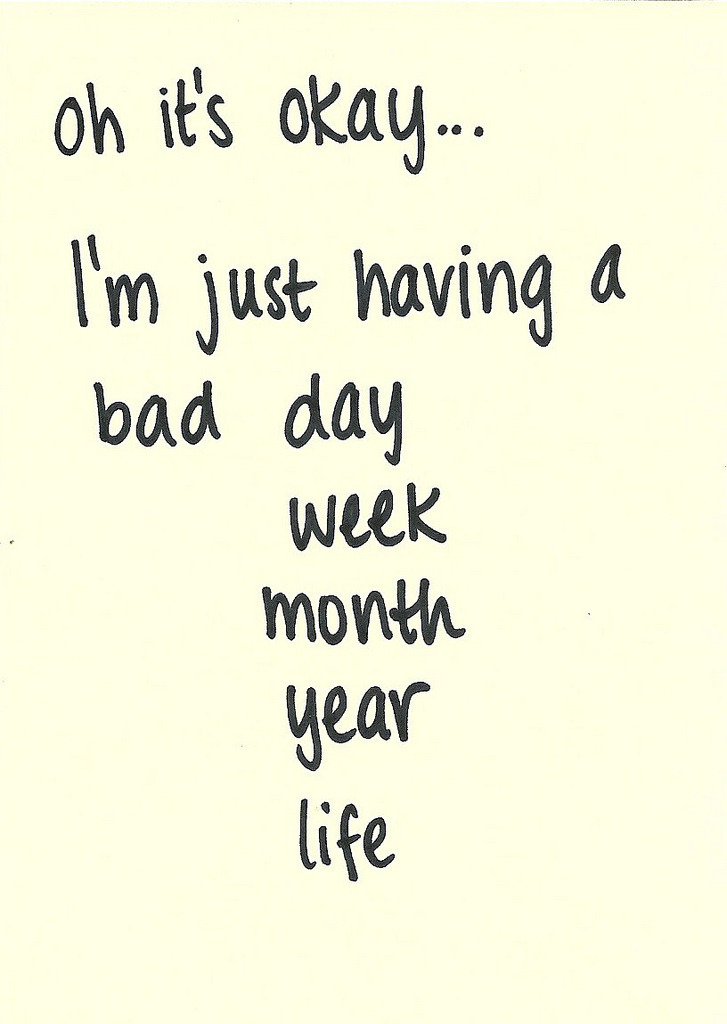 oh it's okay...
I'm just having a
bad day
week
month
year
life